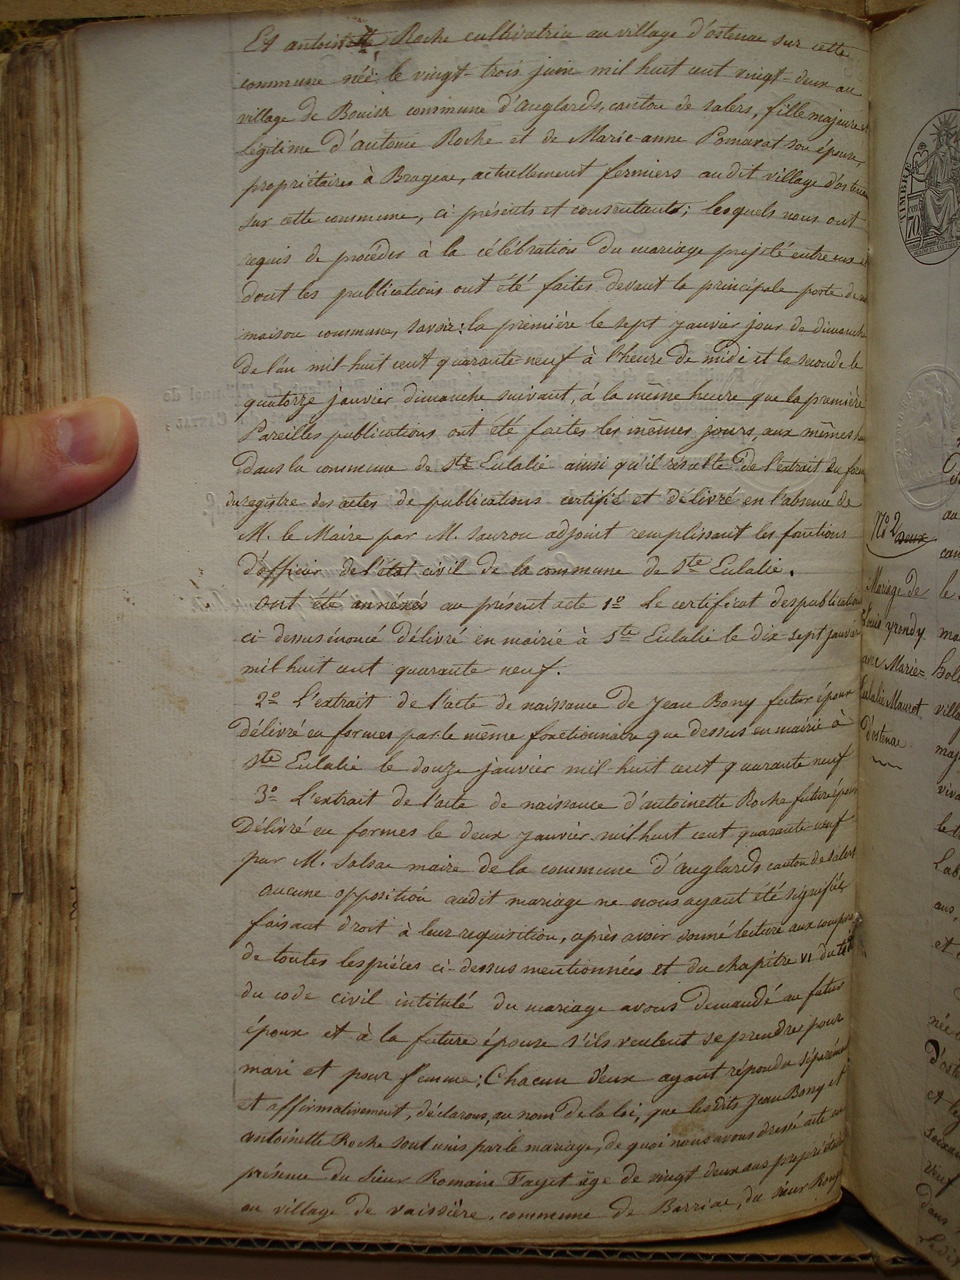 Et antoinette Roche cultivatrice au village d'ostenac sur cette
commune née le vingt-trois juin mil huit cent vingt-deux au
village de Bouix commune d'anglards, canton de salers, fille majeure et
légitime d'antoine Roche et de Marie-anne Pomarat son épouse,
propriétaires à Brageac, actuellement fermiers audit village d'ostenac
sur cette commune, ci présents et consentants; lesquels nous ont
requis de procéder à la célébration du mariage projeté entre eux et
dont les publications ont été faites devant la principale porte de
maison commune, savoir: la première le sept janvier jour de dimanche
de l'an mil-huit cent quarante-neuf à l'heure de midi et la seconde le
quatorze janvier dimanche suivant, à la même heure que la première
Pareilles publications ont été faites les mêmes jours, aux mêmes
dans la commune de Ste Eulalie ainsi qu'il résulte de l'extrait du
du registre des actes de publications certifié et délivré en l'absence de
M. le Maire par M. adjoint remplissant les fonctions
d'officier de l'état civil de la commune de Ste Eulalie.
Ont été annéxés au présent acte 1o Le certificat des publications
ci-dessus énoncé délivré en mairie à Ste Eulalie le dix-sept janvier
mil huit cent quarante neuf.
2o L'extrait de l'acte de naissance de Jean Bony futur époux
délivré en formes par le même fonctionnaire que dessus en mairie à
Ste Eulalie le douze janvier mil-huit cent quarante neuf
3o L'extrait de l'acte de naissance d'antoinette Roche future épouse
Délivré en formes le deux janvier mil huit cent quarante-neuf
par M. Salsac maire de la commune d'anglards canton de salers
aucune opposition audit mariage ne nous ayant été signifiée
faisant droit à leur requisition, après avoir donné lecture aux
de toutes les pièces ci-dessus mentionnées et du chapitre VI du titre
du code civil intitulé du mariage avons demandé au futur
époux et à la future épouse s'ils veulent se prendre pour
mari et pour femme; Chacun d'eux ayant répondu séparément
et affirmativement, déclarons, au nom de la loi, que lesdits Jean Bony et
antoinette Roche sont unis par le mariage, de quoi nous avons dressé acte en
présence du Sieur Romain Fayet âge de vingt deux ans propriétaire
au village de vaissière, commune de Barriac, du sieur
No 2 deux
Mariage de
Louis
avec Marie=
Eulalie Mauret
D'ostenac
TIMBRE
70